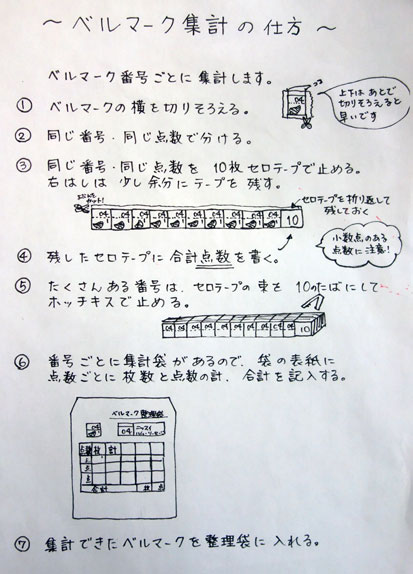 ～ベルマーク集計の仕方～
ベルマーク番号ごとに集計します。
① ベルマークの横を切りそろえる。
上下は あとで
切りそろえると
早いです
② 同じ番号・同じ点数で分ける。
③ 同じ番号・同じ点数を 10枚 セロテープで止める。
右はしは 少し余分にテープを 残す。
セロテープを折り返して
残しておく
04 04 04 04 04 04 04 04 04 10
小数点のある
点数に注意!
④ 残したセロテープに 合計点数を書く。
⑤ たくさんある番号は、セロテープの束を 10のたばにして
ホッチキスで止める。
10
⑥ 番号ごとに集計袋があるので、袋の表紙に
点数ごとに 枚数と点数の計、合計を記入する。
ベルマーク整理袋
04
点数 枚 計
合計 枚 点
⑦ 集計できたベルマークを整理袋に 入れる。